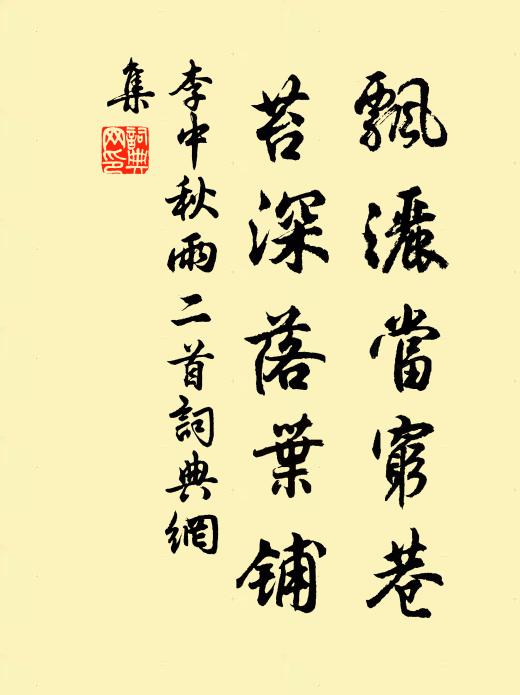 飄灑當窮巷
苔深落葉鋪
李中秋雨二首詞典網
集
詞典
网印